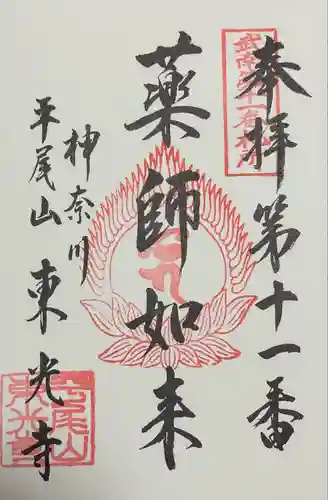 奉拝第十一番
薬師如来
神奈川
平尾山東光寺